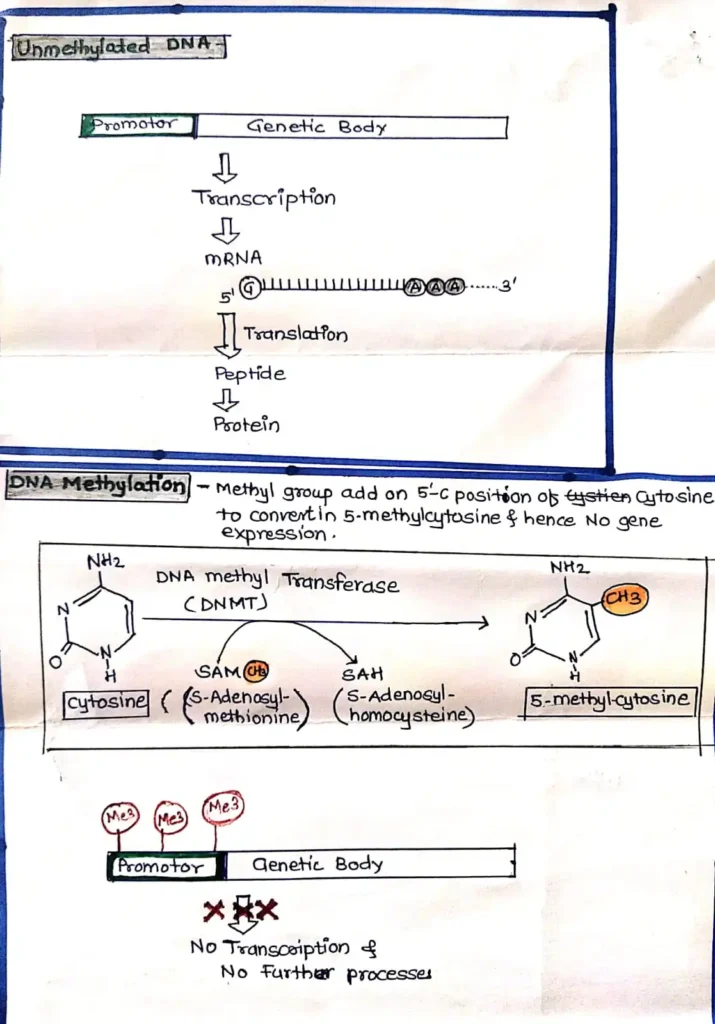 Unmethylated DNA -
Promotor Genetic Body
Transcription
mRNA
5' G A A A ...... 3'
Translation
Peptide
Protein
DNA Methylation - Methyl group add on 5'-C position of cystien Cytosine
to convert in 5-methylcytosine & hence No gene
expression.
NH2
N
O
N
H
Cytosine
DNA methyl Transferase
(DNMT)
SAM CH3
(S-Adenosyl-
methionine)
SAH
(S-Adenosyl-
homocysteine)
NH2
CH3
N
O
N
H
5-methyl-cytosine
Me3 Me3 Me3
Promotor Genetic Body
No Transcription &
No Further processes